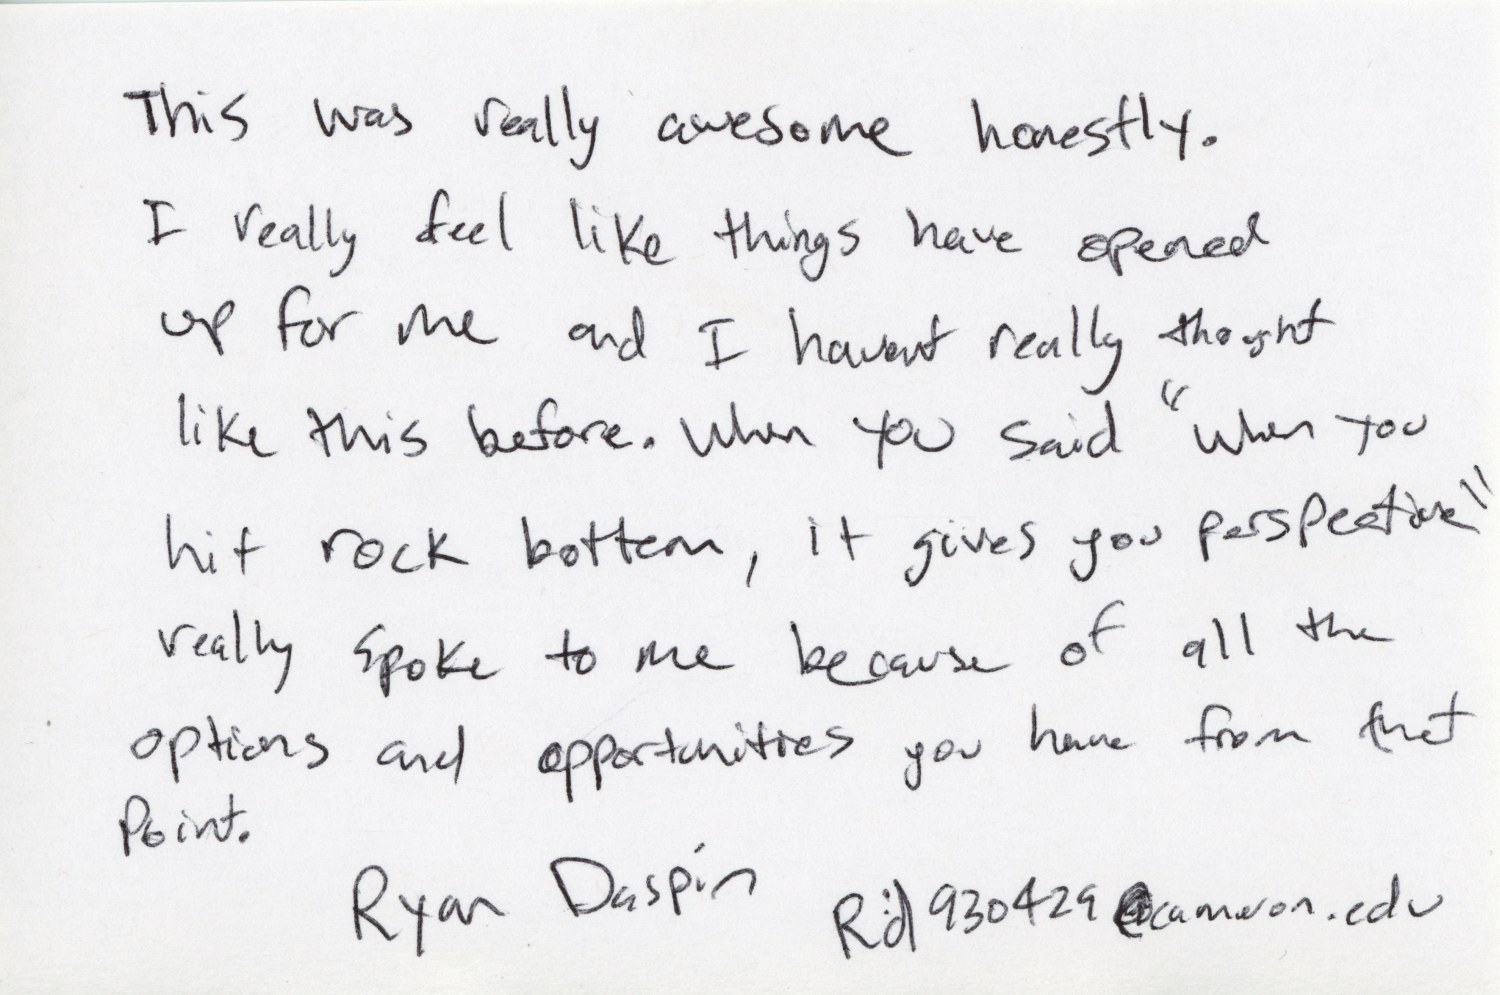 This was really awesome honestly.
I really feel like things have opened
up for me and I havent really thought
like this before. When you said "when you
hit rock bottom, it gives you perspective"
really spoke to me because of all the
options and opportunities you have from that
point.
Ryan Daspin Rd930429@cameron.edu